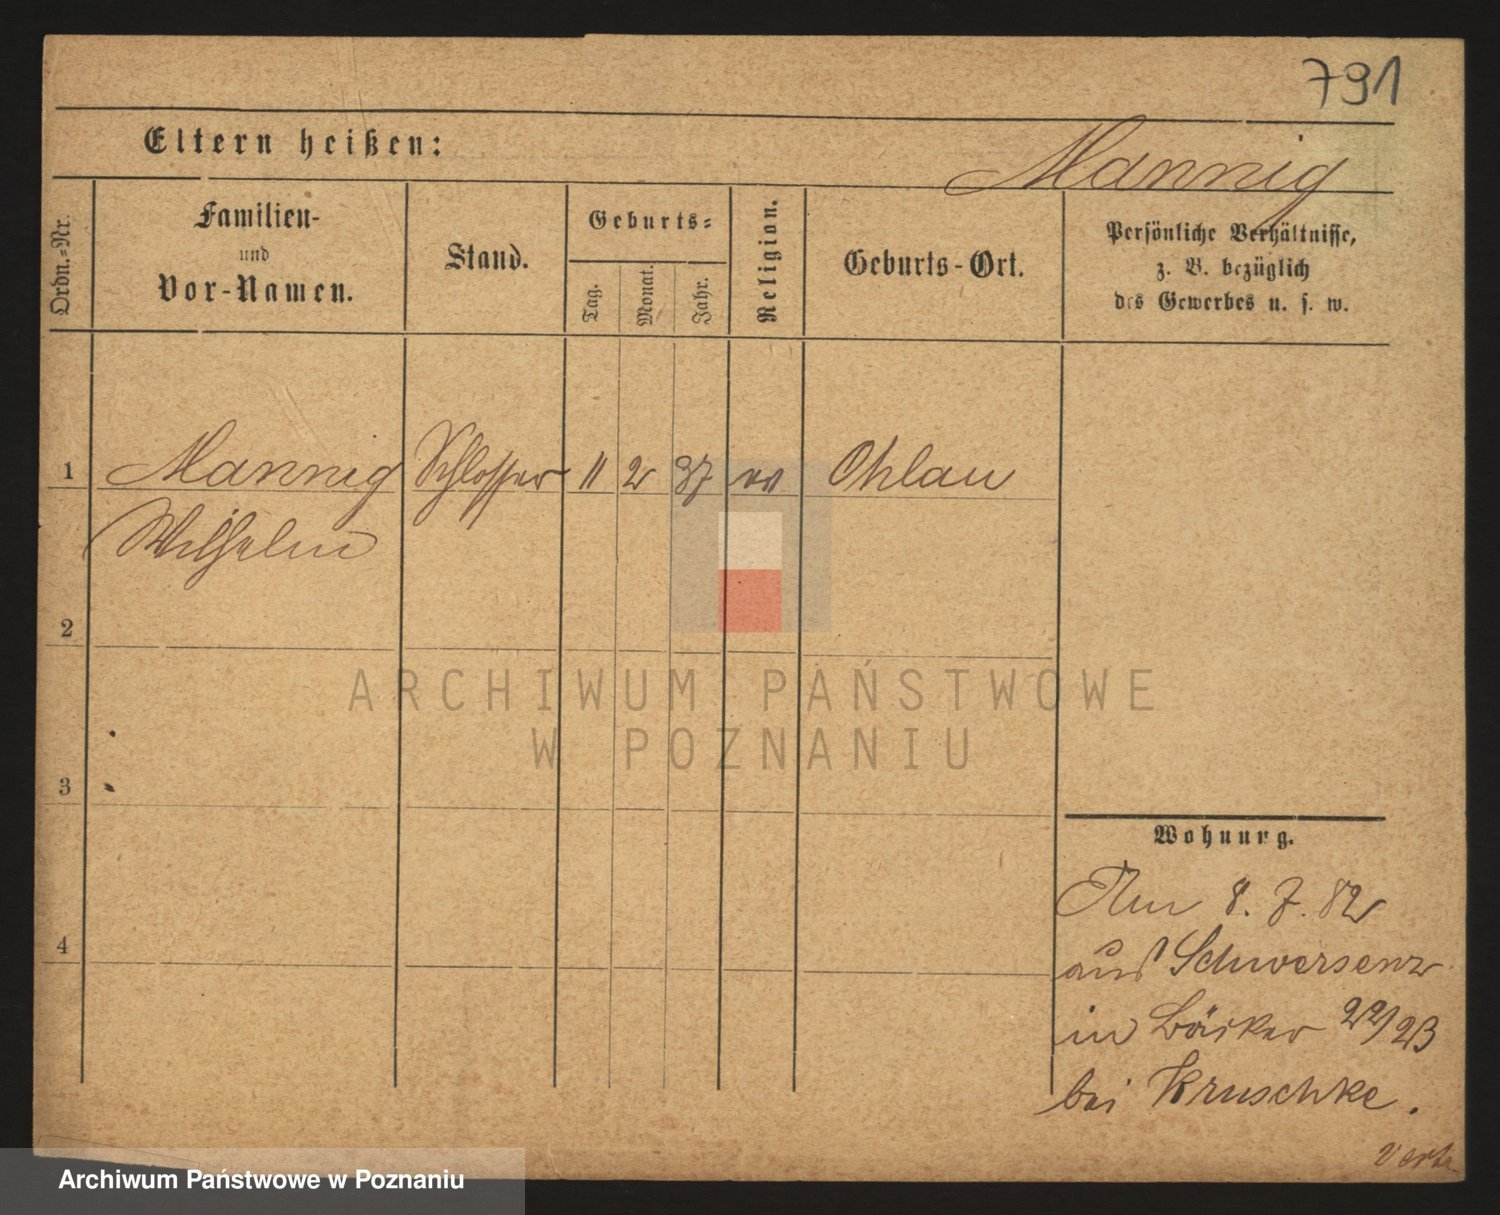 791
Eltern heißen:
Mannig
Ordn.-Nr.
Familien-
und
Vor-Namen.
Stand.
Geburts-
Tag.
Monat.
Jahr.
Religion.
Geburts-Ort.
Persönliche Verhältnisse,
z. B. bezüglich
des Gewerbes u. s. w.
1 Mannig Schlosser 11 2 37 Ohlau
Wilhelm
2
3
4
ARCHIWUM PAŃSTWOWE
W POZNANIU
Wohnung.
Am 8. 7. 82
aus Schwersenz
in Bäcker 22/23
bei Kruschke.
Archiwum Państwowe w Poznaniu